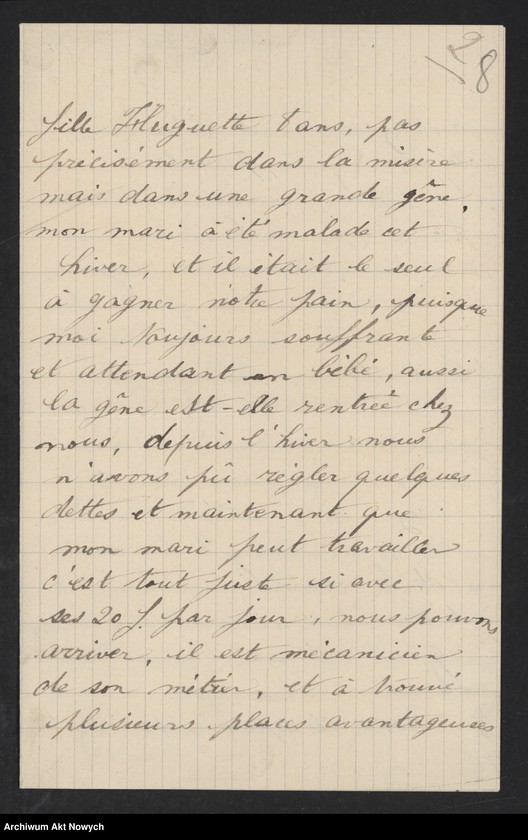 28
fille Huguette 8 ans, pas
précisément dans la misère
mais dans une grande gêne,
mon mari à été malade cet
hiver, et il était le seul
à gagner notre pain, puisque
moi toujours souffrante
et attendant un bébé, aussi
la gêne est-elle rentrée chez
nous, depuis l'hiver nous
n'avons pû régler quelques
dettes et maintenant que
mon mari peut travailler
c'est tout juste si avec
ses 20 f. par jour, nous pouvons
arriver, il est mécanicien
de son métier, et à trouvé
plusieurs places avantageuses
Archiwum Akt Nowych